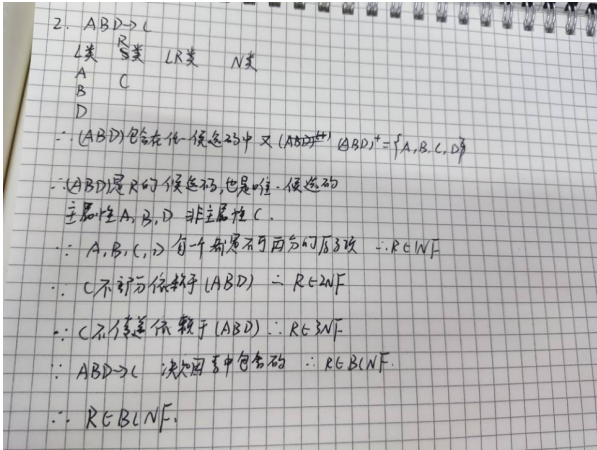 2. ABD→C
L类 R类 LR类 N类
A C
B
D
∴ (ABD)包含在任一候选码中 又 (ABD)⁺ (ABD)⁺={A,B,C,D}
∴(ABD)是R的候选码,也是唯一候选码
主属性A,B,D 非主属性C.
∵ A,B,C,D 每一个都是不可再分的原子项 ∴R∈1NF
∵ C不部分依赖于(ABD) ∴ R∈2NF
∵ C不传递依赖于(ABD) ∴ R∈3NF
∵ ABD→C 决定因素中包含码 ∴ R∈BCNF.
∴ R∈BCNF.